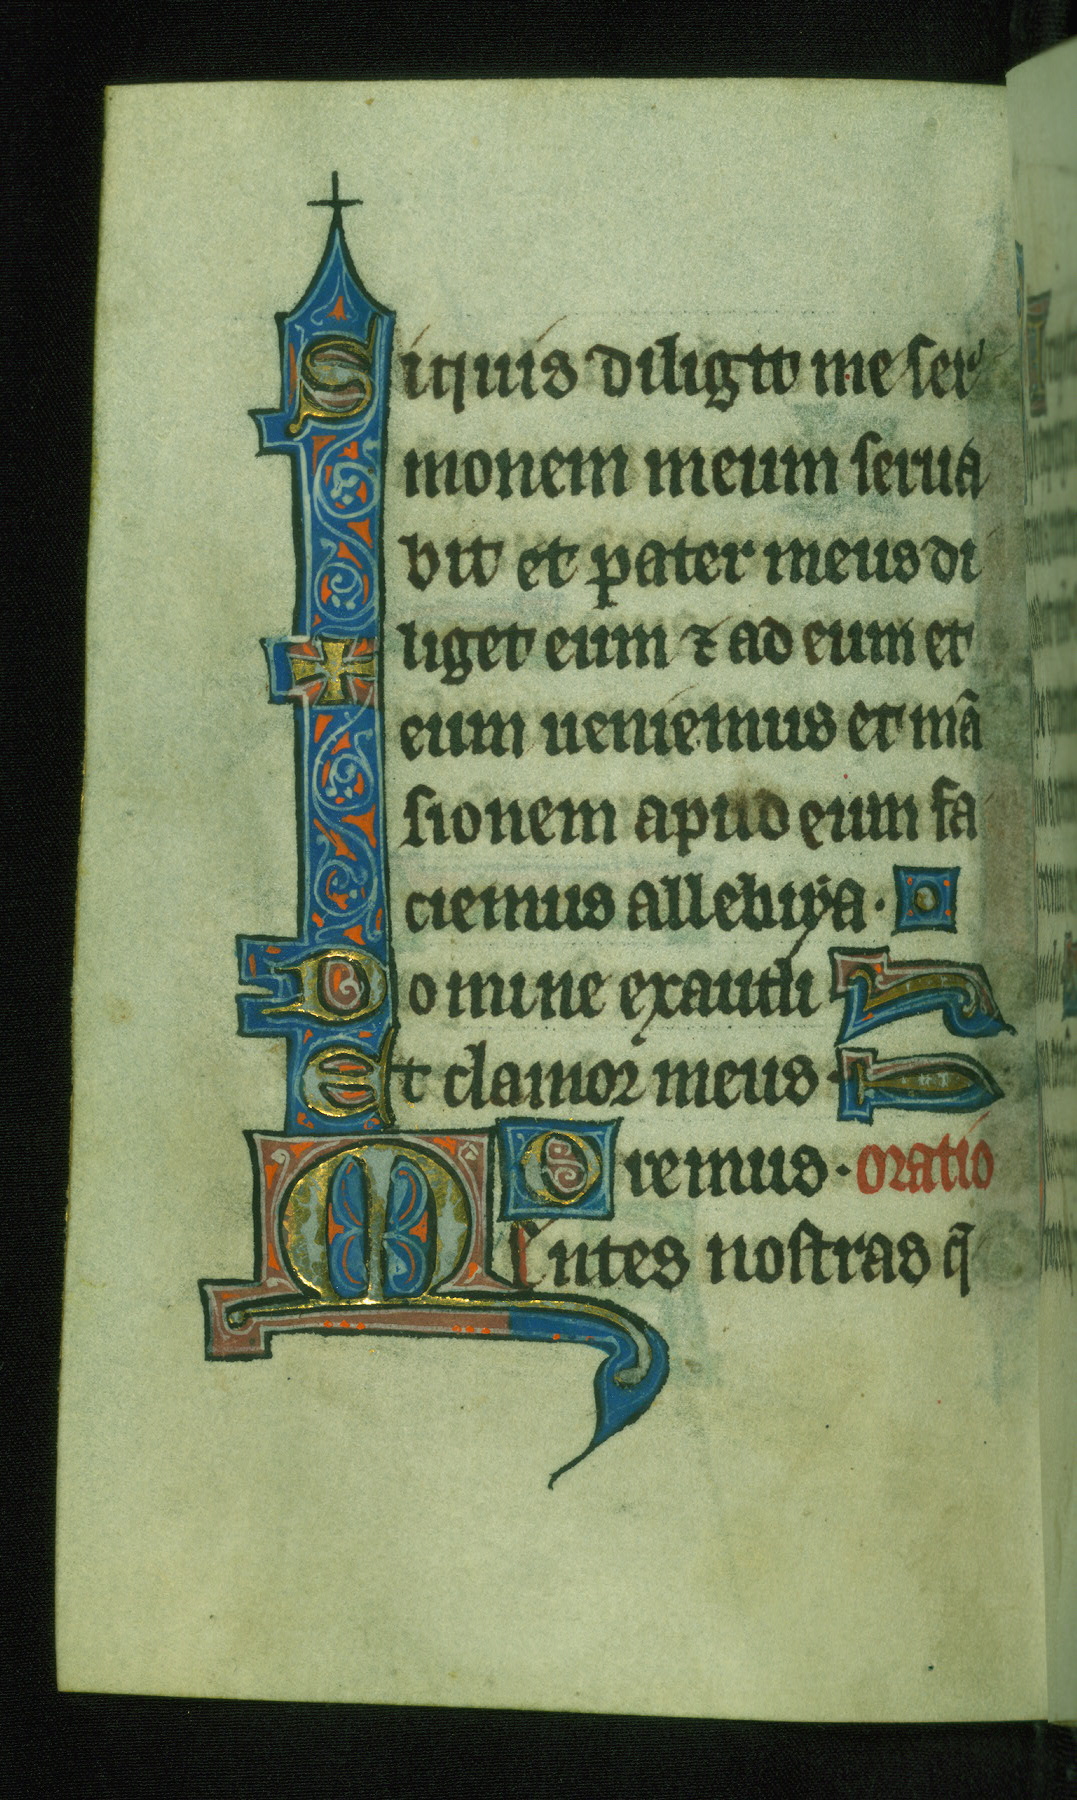 Siquis diligit me ser
monem meum serua
bit et pater meus di
liget eum ⁊ ad eum et
eum ueniemus et mã
sionem apud eum fa
ciemus alleluya·
Domine exaudi
Et clamor meus·
Oremus· oratio
Mentes nostras q̃